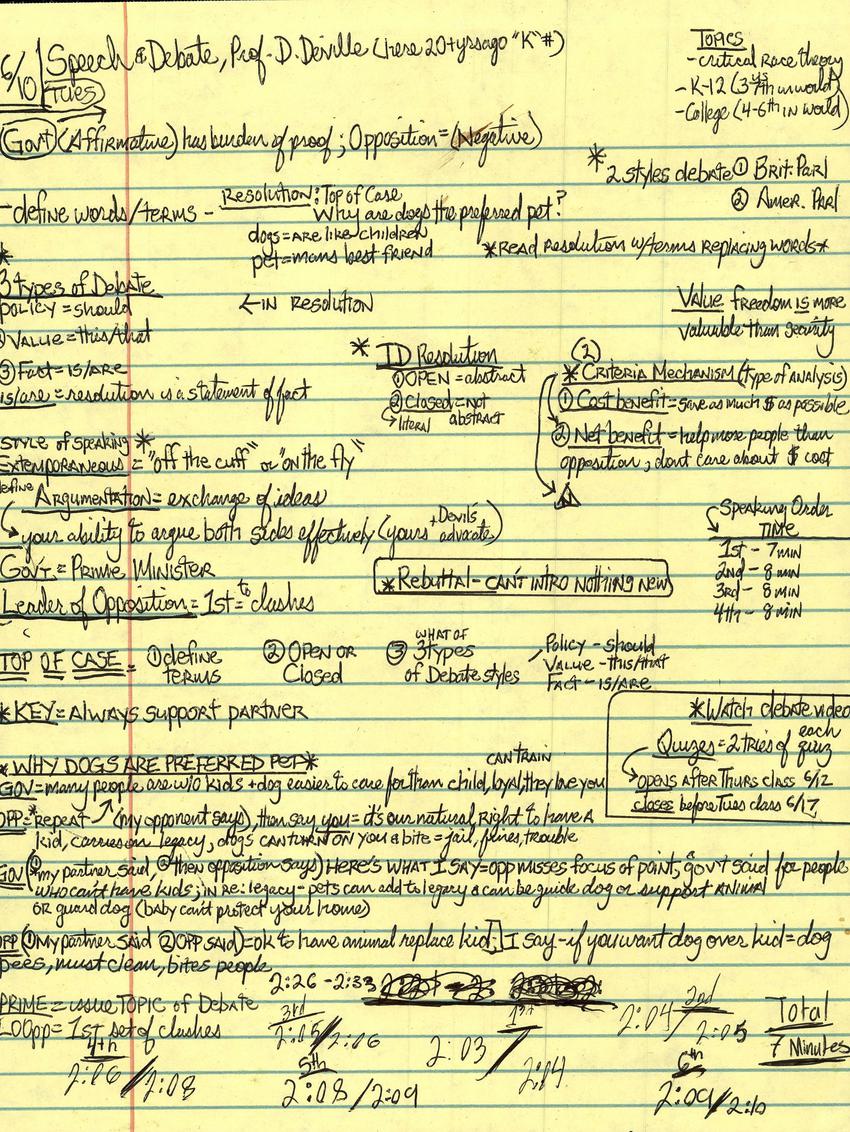 6/10 Speech & Debate, Prof. D. Deville (here 20+yrs ago "K" #)
Tues
Topics
- critical Race theory
- K-12 (37th in world)
- College (4-6th in world)
Govt (Affirmative) has burden of proof; Opposition = (Negative)
* 2 styles debate ① Brit. Parl
② Amer. Parl
- define words/terms - Resolution: Top of Case
Why are dogs the preferred pet?
dogs = are like children
pet = mans best friend
*READ Resolution w/terms REPLACING WORDS*
*
3 types of Debate
POLICY = should
← IN RESOLUTION
② VALUE = this/that
③ Fact = is/are
is/are = resolution is a statement of fact
Value freedom is more
valuable than security
* ID Resolution
① OPEN = abstract
② Closed = not
abstract
↳ literal
(2)
* Criteria Mechanism (type of analysis)
① Cost benefit = save as much $ as possible
② Net benefit = help more people than
opposition; dont care about $ cost
STYLE of speaking *
Extemporaneous = "off the cuff" or "on the fly"
define
Argumentation = exchange of ideas
↳ your ability to argue both sides effectively (yours + Devil's advocate)
Speaking Order
TIME
1st - 7 min
2nd - 8 min
3rd - 8 min
4th - 8 min
Gov't = Prime Minister
*Rebuttal - CAN'T INTRO NOTHING NEW
Leader of Opposition = 1st to clashes
TOP OF CASE = ① define terms ② OPEN OR Closed ③ WHAT OF 3 types of Debate styles
Policy - should
Value - this/that
Fact - is/are
*KEY = Always support partner
*Watch debate video
Quizes = 2 tries of each quiz
↳ opens AFTER Thurs class 6/12
closes before Tues class 6/17
*WHY DOGS ARE PREFERRED PET*
CAN TRAIN
GOV = many people are w/o kids + dog easier to care for than child, loyal, they love you
OPP = *repeat (my opponent says), then say you = it's our natural Right to have A
kid, carries on legacy, dogs can TURN ON you & bite = jail, fines, trouble
GOV (① my partner said, ② then opposition says) HERE'S WHAT I SAY = opp misses focus of point, gov't said for people
who can't have kids; in re: legacy - pets can add to legacy & can be guide dog or support ANIMAL
OR guard dog (baby can't protect your home)
OPP (① My partner said ② OPP said) = ok to have animal replace kid; I say - if you want dog over kid = dog
pees, must clean, bites people
2:26 - 2:33
PRIME = issue TOPIC of Debate
LOOpp = 1st set of clashes
3rd
2:05/2:06
1st
2:03 / 2:04
2nd
2:04/2:05
Total
7 Minutes
4th
2:06/2:08
5th
2:08/2:09
6th
2:09/2:10